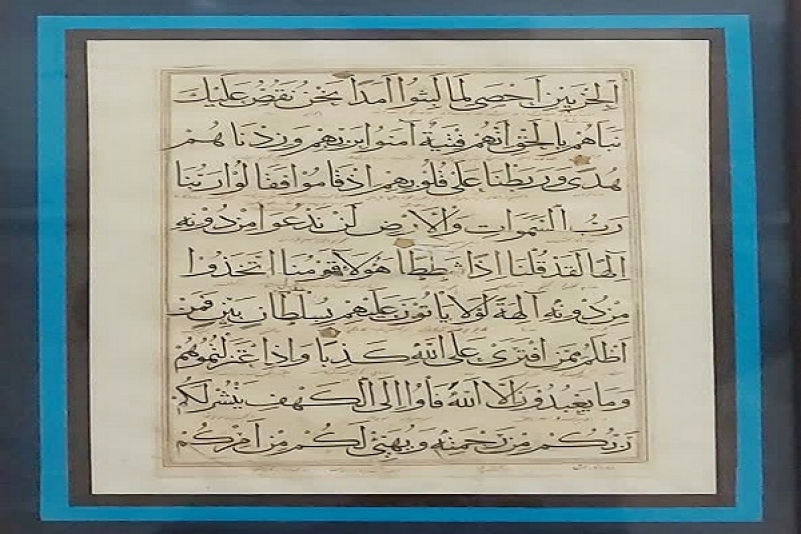 الحزبين احصى لما لبثوا امدا نحن نقص عليك
نباهم بالحق انهم فتية آمنوا بربهم وزدناهم
هدى وربطنا على قلوبهم اذ قاموا فقالوا ربنا
رب السموات والارض لن ندعوا من دونه
الها لقد قلنا اذا شططا هؤلاء قومنا اتخذوا
من دونه آلهة لولا ياتون عليهم بسلطان بين فمن
اظلم ممن افترى على الله كذبا واذ اعتزلتموهم
وما يعبدون الا الله فأوا الى الكهف ينشر لكم
ربكم من رحمته ويهيئ لكم من امركم